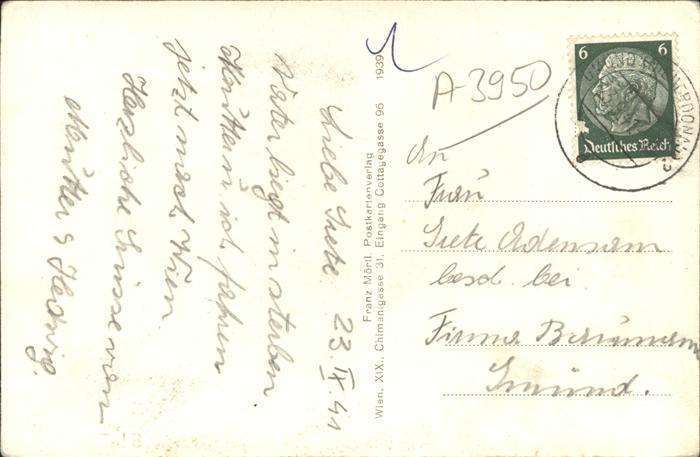 Liebe Grete. 23.IX.41
Vater liegt im sterben
Mutter u ich fahren
jetzt nach Wien
Herzliche Grüsse von
Mutter & Hedwig.
Franz Mörtl, Postkartenverlag
Wien, XIX., Chimanigasse 31, Eingang Cottagegasse 96 1939
A-3950
6 6
Deutsches Reich
An
Frau
Grete Adensam
besch. bei
Firma
Gmünd.